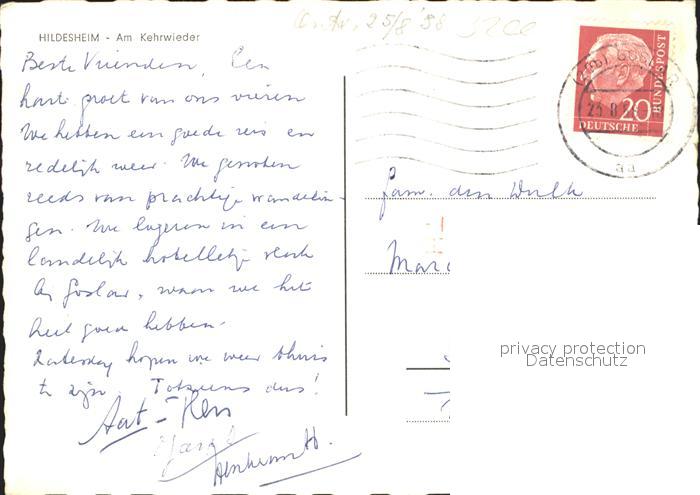 HILDESHEIM - Am Kehrwieder
25/8 '58
Beste Vrienden, Een
hart. groet van ons vieren
We hebben een goede reis en
redelijk weer. We genoten
reeds van prachtige wandelin-
gen. We logeren in een
landelijk hotelletje vlak
bij Goslar, waar we het
heel goed hebben.
Zaterdag hopen we weer thuis
te zijn. Tot ziens dus!
Aat -
DEUTSCHE
20
BUNDESPOST
Fam. den
privacy protection
Datenschutz